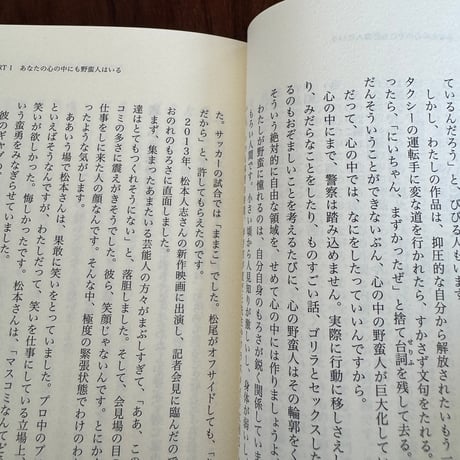 ているんだろう」と、びびる人も
しかし、わたしの作品は、抑圧的な自分から解放されたいもう一
タクシーの運転手に変な道を行かれたら、すかさず文句をたれる。
たら、「にいちゃん、まずかったぜ」と捨て台詞を残して去る。
せりふ
だんそういうことができないぶん、心の中の野蛮人が巨大化してい
だって、心の中では、なにをしたっていいんですから。
心の中にまで、警察は踏み込めません。実際に行動に移さえ
り、みだらなことをしたり、ものすごい話、ゴリラとセックスした
るのもおぞましいことを考えるたびに、心の野蛮人はその輪郭をく
そういう絶対的に自由な領域を、せめて心の中には作りましょう。
わたしが野蛮に憧れるのは、自分自身のもろさが鋭く関係していま
もろい人間です。小さい頃から人見知りが激しいし、身体が弱い
RT I あなたの心の中にも野蛮人はいる
た。サッカーの試合では「ままこ」でした。松尾がオフサイドしても、「
だから」と、許してもらえたのです。
2013年、松本人志さんの新作映画に出演し、記者会見に臨んだの
おのれのもろさに直面しました。
まず、集まったあまたいる芸能人の方々がまぶしすぎて、「ああ、こ
達はとてもつくれそうにない」と、落胆しました。そして、会見場の目
コミの多さに震えがきそうでした。彼ら、笑顔じゃないんです。とにか
仕事をしに来た人の顔なんです。そんな中、極度の緊張状態でわけの
ったような気がします。
ああいう場で松本さんは、果敢に笑いをとっていました。プロ中のプ
といえばそうなんですが、わたしだって、笑いを仕事にしている立場上、
笑いが欲しかった。悔しかったです。松本さんは、「マスコミなんてど
い蛮勇をみなぎらせていました。
彼のギャグの